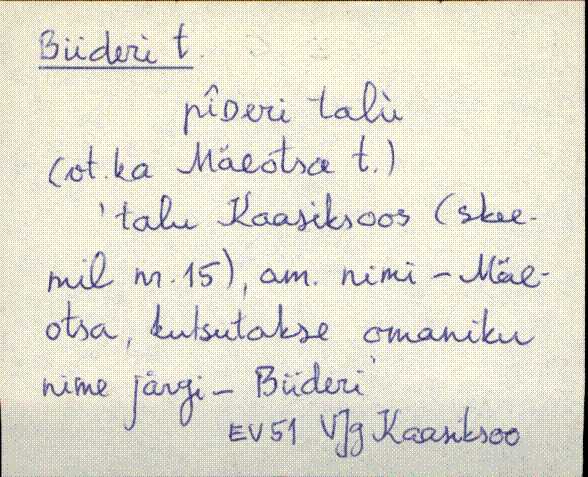 Biideri t.
pîDeri talù
(vt. ka Mäeotsa t.)
'talu Kaasiksoos (skee-
mil nr. 15), am. nimi – Mäe-
otsa, kutsutakse omaniku
nime järgi – Biideri'
EV 51 VJg Kaasiksoo